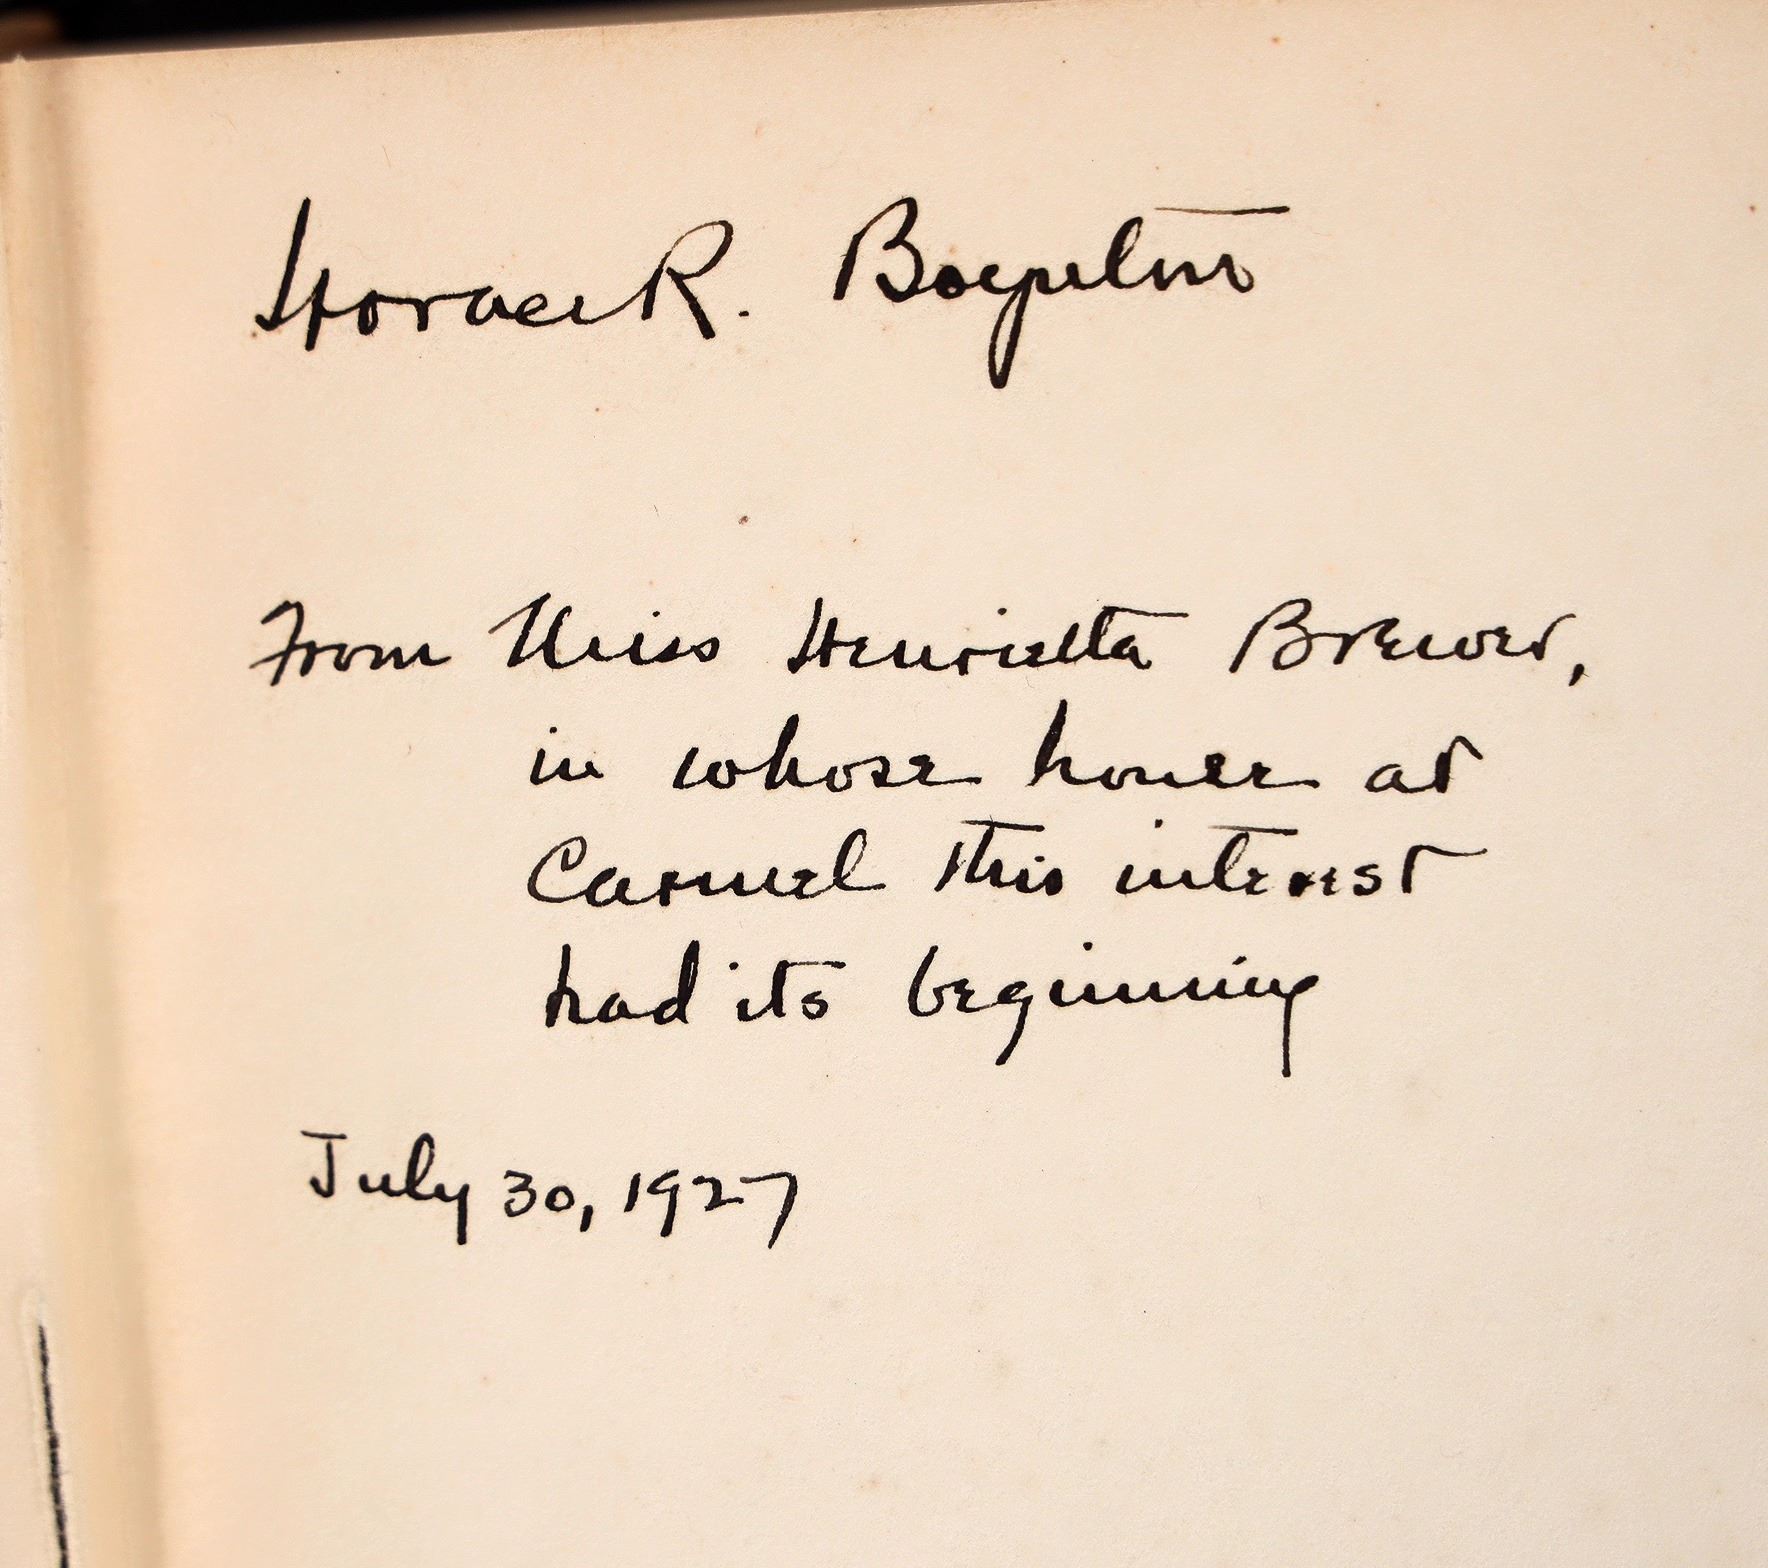 Horace R. Boynton
From Miss Henrietta Brewer,
in whose house at
Carmel this interest
had its beginning
July 30, 1927